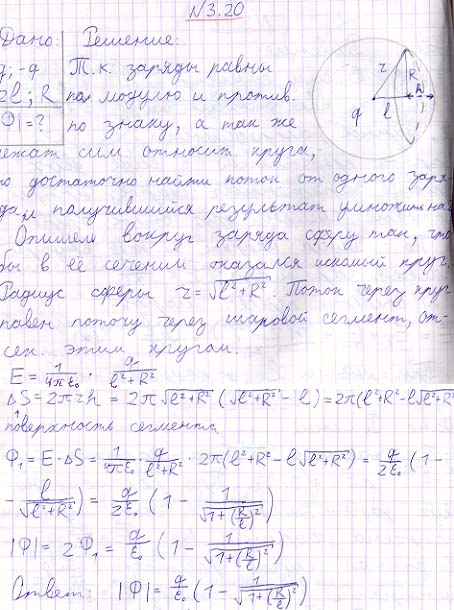 N3.20
Дано: Решение:
q; -q Т.к. заряды равны
2l; R по модулю и против.
|Ф|=? по знаку, а так же
лежат сим. относит круга,
то достаточно найти поток от одного заря-
да, и получившийся результат умножить на
Опишем вокруг заряда сферу так, что
бы в её сечении оказался искомый круг.
Радиус сферы r = √(l²+R²). Поток через круг
равен потоку через шаровой сегмент, от-
сеч. этим кругом.
E = 1/(4πε₀) · q/(l²+R²)
ΔS = 2πrh = 2π√(l²+R²) (√(l²+R²) - l) = 2π(l²+R²-l√(l²+R²)
поверхность сегмента
Ф₁ = E·ΔS = 1/(4πε₀) · q/(l²+R²) · 2π(l²+R²-l√(l²+R²)) = q/(2ε₀) (1 -
- l/√(l²+R²)) = q/(2ε₀) (1 - 1/√(1+(R/l)²))
|Ф| = 2Ф₁ = q/ε₀ (1 - 1/√(1+(R/l)²))
Ответ: |Ф| = q/ε₀ (1 - 1/√(1+(R/l)²))
r R h
q l